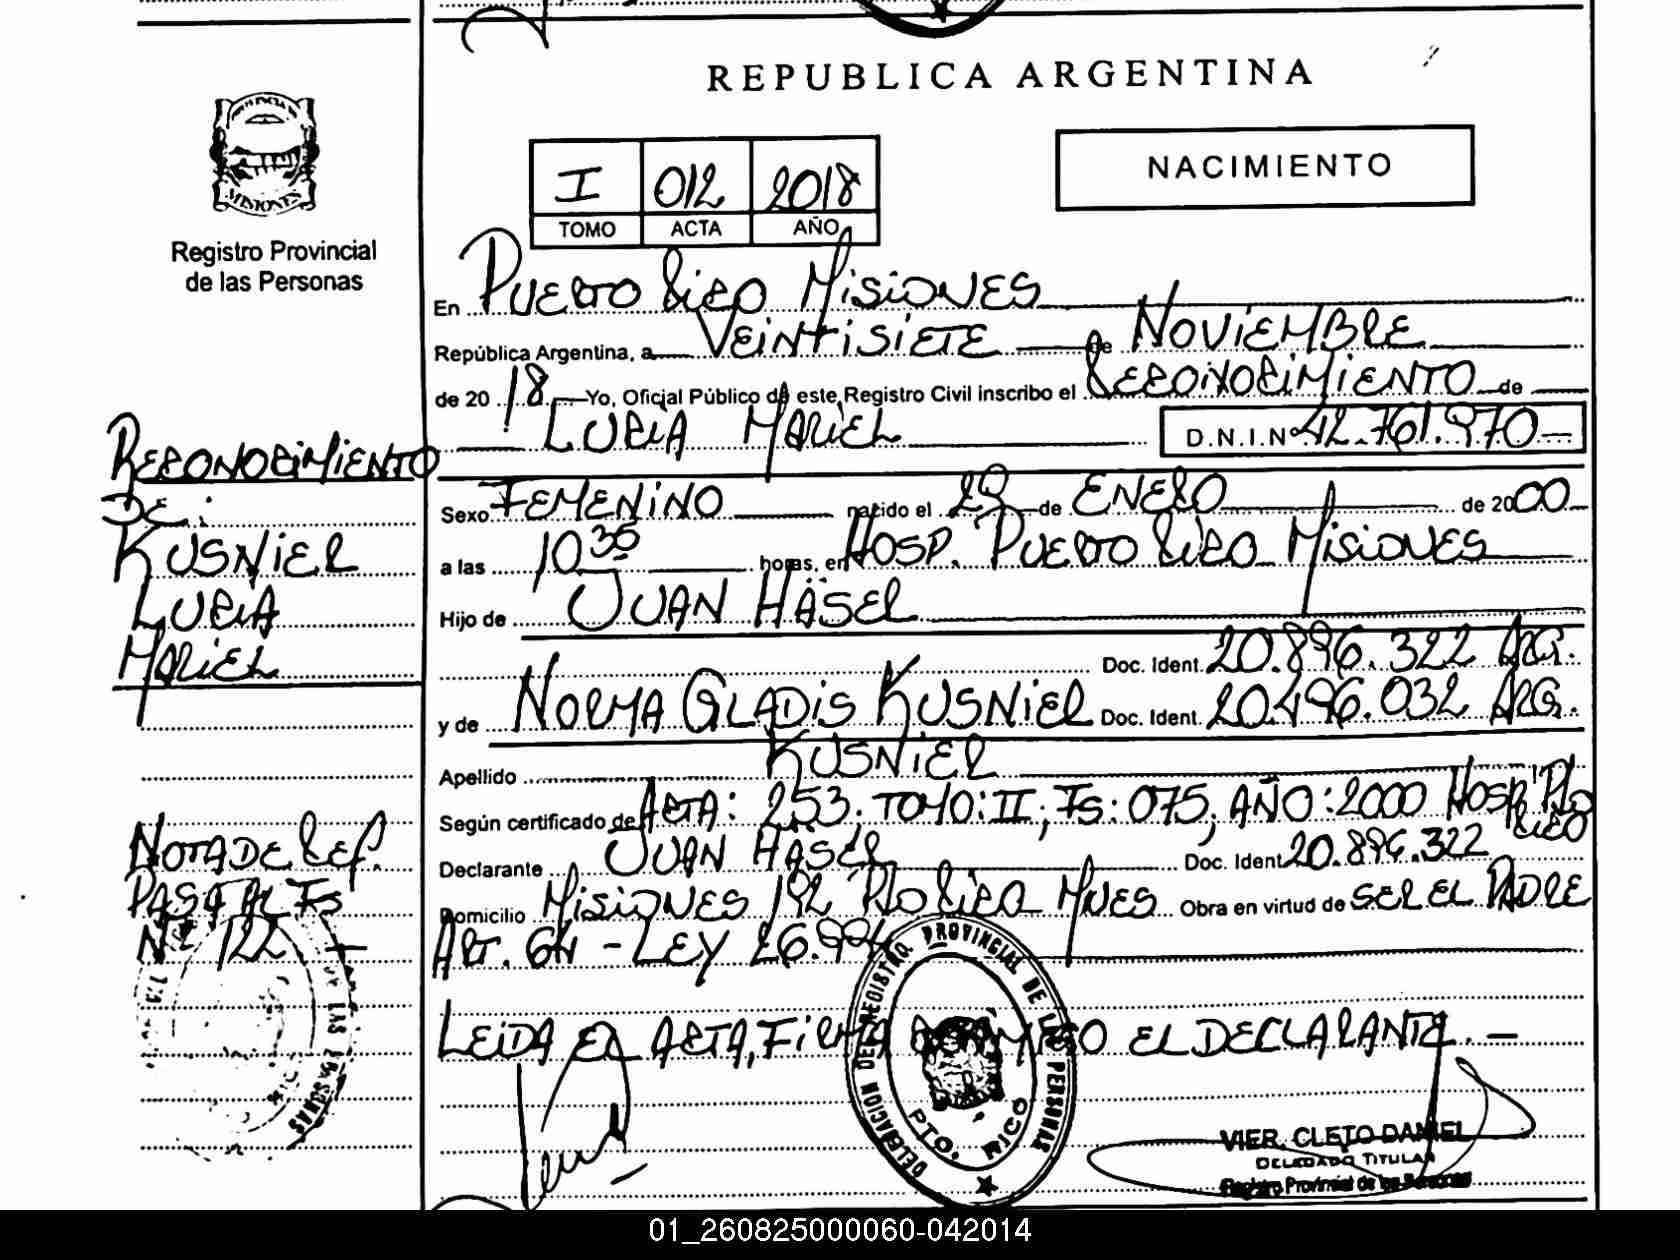 REPUBLICA ARGENTINA
PROVINCIA DE
MISIONES
Registro Provincial
de las Personas
NACIMIENTO
I 012 2018
TOMO ACTA AÑO
En PUERTO RICO MISIONES
República Argentina, a VEINTISIETE de NOVIEMBRE
de 20 18 Yo, Oficial Público de este Registro Civil inscribo el RECONOCIMIENTO de
LUCIA MARIEL D.N.I.Nº 42.761.970
RECONOCIMIENTO
DE:
KUSNIER
LUCIA
MARIEL
Sexo FEMENINO nacido el de ENERO de 2000
a las 10 35 horas, en HOSP. PUERTO RICO MISIONES
Hijo de JUAN HÄSEL
Doc. Ident. 20.896.322 ARG.
y de NORMA GLADIS KUSNIER Doc. Ident. 20.496.032 ARG.
Apellido KUSNIER
Según certificado de ACTA: 253. TOMO: II; Fs: 075, AÑO: 2000 HOSP. Pto RICO
Declarante JUAN HÄSEL Doc. Ident. 20.896.322
Domicilio MISIONES 192 Pto RICO MNES Obra en virtud de SER EL PADRE
ART. 64 - LEY 26.994
LEIDA EL ACTA, FIRMA CONMIGO EL DECLARANTE. -
NOTA DE REF.
PASA AL Fs
Nº 122 -
DE LAS PERSONAS
DELEGACION DEL REGISTRO PROVINCIAL DE LAS PERSONAS
PTO. RICO
VIER, CLETO DANIEL
DELEGADO TITULAR
Registro Provincial de las Personas
01_260825000060-042014